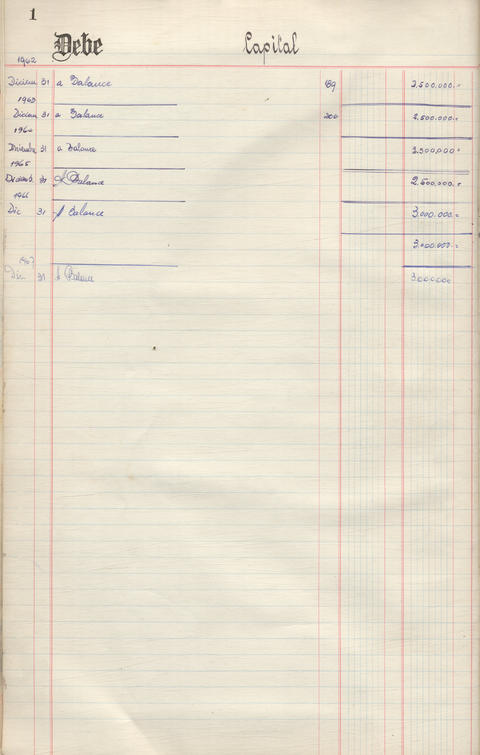 1
Debe Capital
1962
Diciem 31 a Balance 189 2.500.000.-
1963
Diciem 31 a Balance 200 2.500.000.-
1964
Diciembre 31 a Balance 2.500,000.-
1965
Diciemb. 31 a Balance 2.500,000.-
1966
Dic 31 a Balance 3.000.000.-
3.000.000.-
1967
Dic. 31 a Balance 3.000.000